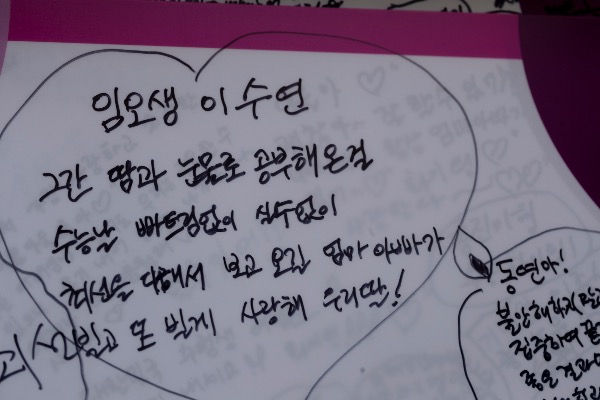 임오생 이수연
그간 땀과 눈물로 공부해온걸
수능날 빠트림없이 실수없이
최선을 다해서 보고 오길 엄마 아빠가
빌고 또 빌게 사랑해 우리딸!
동연아!
불안해하지말고
집중하여
좋은결과